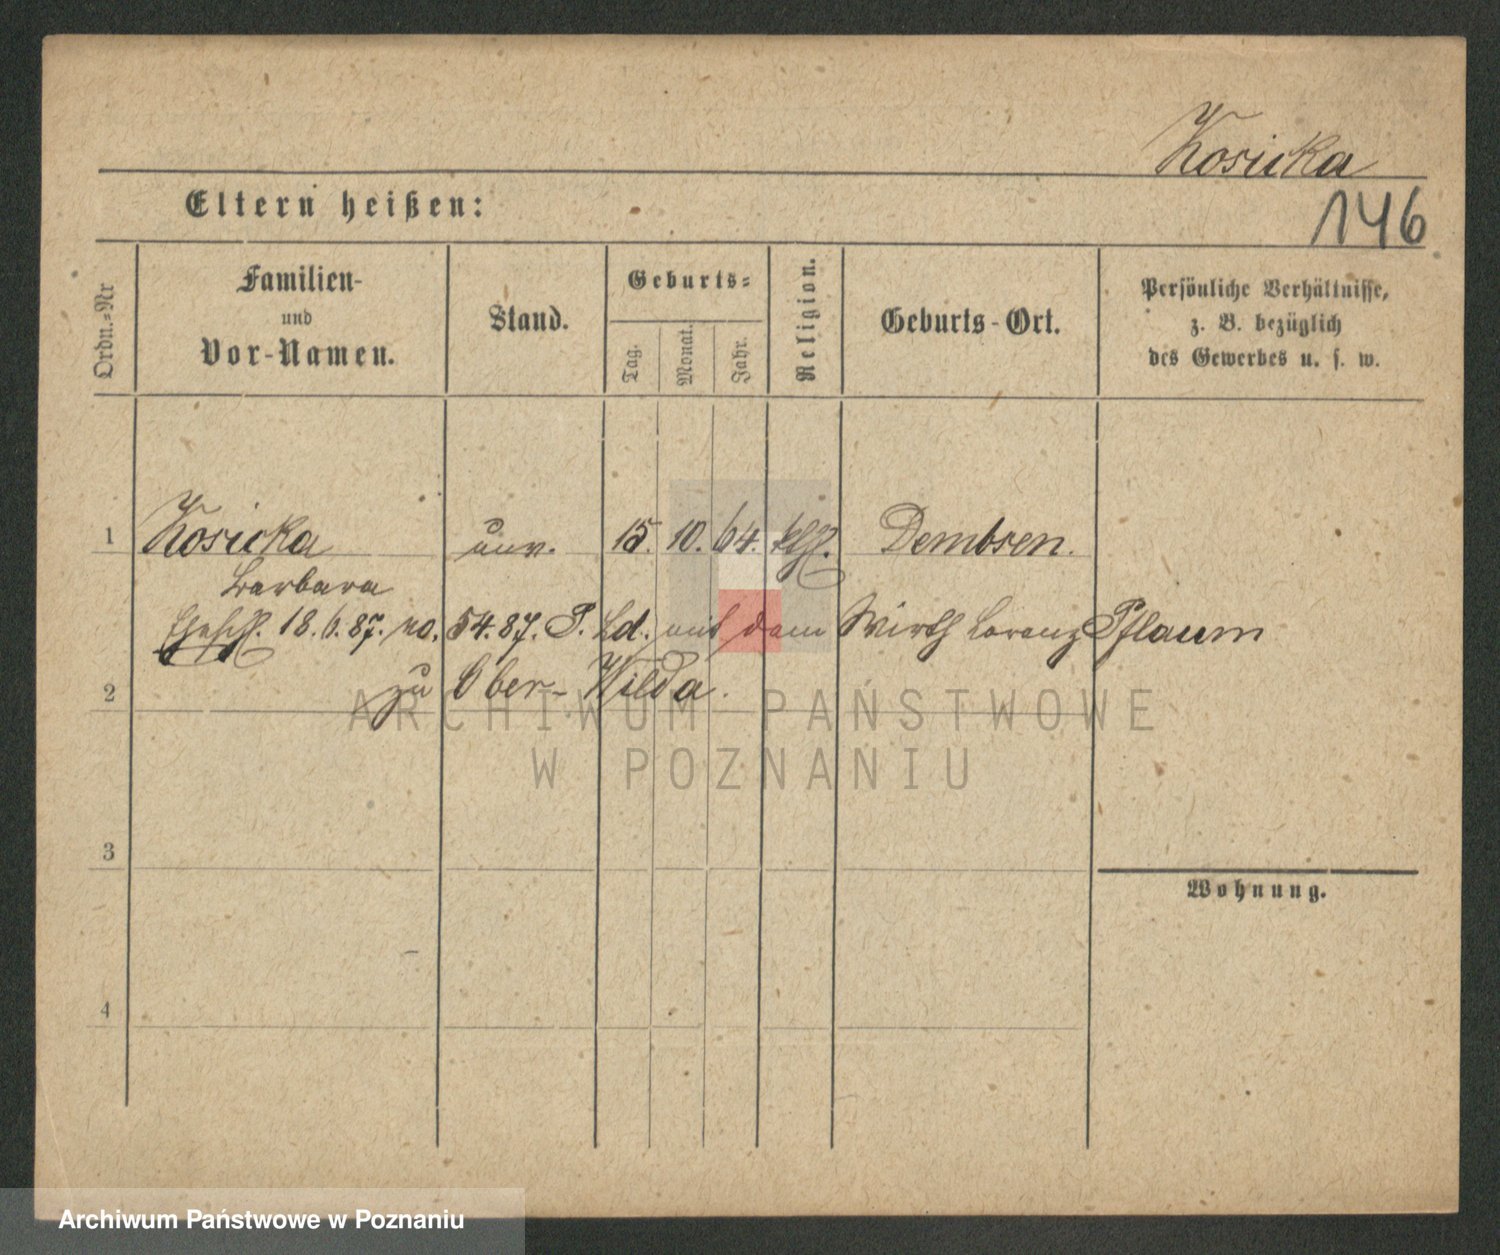 Kosicka
146
Eltern heißen:
Ordn.=Nr
Familien-
und
Vor-Namen.
Stand.
Geburts=
Tag.
Monat.
Jahr.
Religion.
Geburts-Ort.
Persönliche Verhältnisse,
z. B. bezüglich
des Gewerbes u. s. w.
1 Kosicka unv. 15. 10. 64. kth. Dembsen.
Barbara
Eheschl. 18. 6. 87. no. 54. 87. P. Ld. mit dem Wirth Lorenz Pflaum
2 zu Ober-Wilda.
ARCHIWUM PAŃSTWOWE
W POZNANIU
3
Wohnung.
4
Archiwum Państwowe w Poznaniu